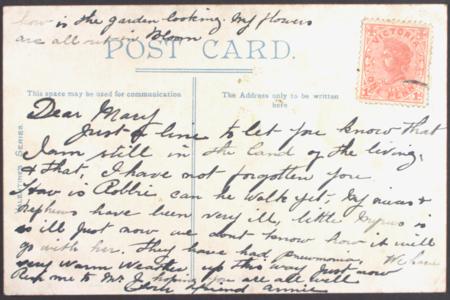 how is the garden looking. My flowers
are all in Bloom
POST CARD.
VICTORIA
ONE PENNY
This space may be used for communication
The Address only to be written here
SERIES
Dear Mary
Just a line to let you know that
I am still in the land of the living,
& that I have not forgotten you
How is Robbie can he walk yet, My nieces &
nephews have been very ill, little is
ill just now we dont know how it will
go with her. They have had pneumonia. We have
very warm weather up this way just now
Rem me to Mr hoping you are all well
Your friend Annie